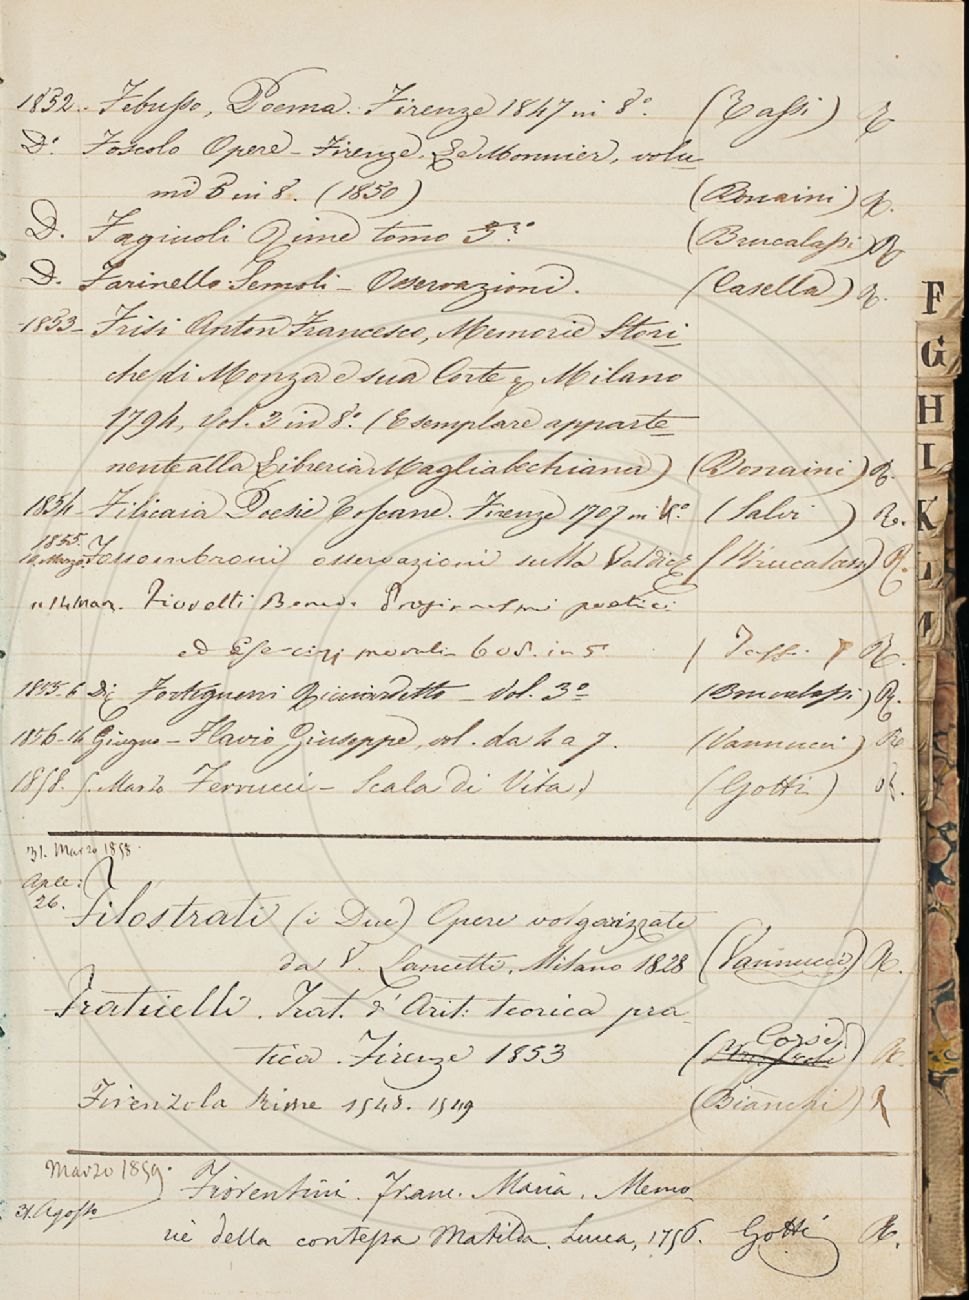 1852. Febusso, Poema. Firenze 1847 in 8.° (Tassi) R
D.° Foscolo Opere - Firenze, Le Monnier, volu-
mi 6 in 8. (1850) (Bonaini) R.
D. Fagiuoli Rime tomo 3.° (Brucalassi) R
D. Farinello Semoli - Osservazioni. (Casella) R.
1853 - Frisi Anton Francesco, Memorie Stori-
che di Monza e sua Corte, Milano
1794, Vol. 3 in 8.° (Esemplare apparte-
nente alla Libreria Magliabechiana) (Bonaini) R.
1854 - Filicaia Poesie Toscane. Firenze 1707 in 4.° (Salvi) R.
1855.
10. Marzo. Fossombroni osservazioni sulla Valdic. (Brucalassi) R.
" 14 Mar. Fioretti Bened. Proginnasmi poetici
ed Esercizj morali 6 vol. in 5 (Tassi) R.
1855. 6 Di Fortiguerri Ricciardetto - Vol. 3.° (Brucalassi) R.
1856 - 14 Giugno - Flavio Giuseppe, vol. da 4 a 7. (Vannucci) R
1858. 5. Marzo Ferrucci - Scala di Vita. (Gotti) R.
31. Marzo 1858.
Aple:
26. Filostrati (i Due) Opere volgarizzate
da V. Lancetti, Milano 1828 (Vannucci) R.
Fraticelli. Trat. d'Arit: teorica pra-
tica. Firenze 1853 (Corsi) R.
Firenzola Rime 1548. 1549 (Bianchi) R
Marzo 1859.
31. Agosto Fiorentini. Franc. Maria. Memo-
rie della contessa Matilda. Lucca, 1756. Gotti R.
F
G
H
I
K
L
M